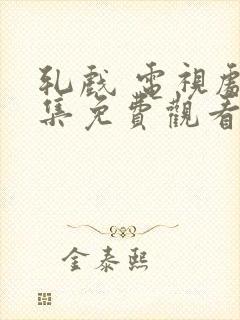 乳戲 電視劇
集免費觀看
金泰熙